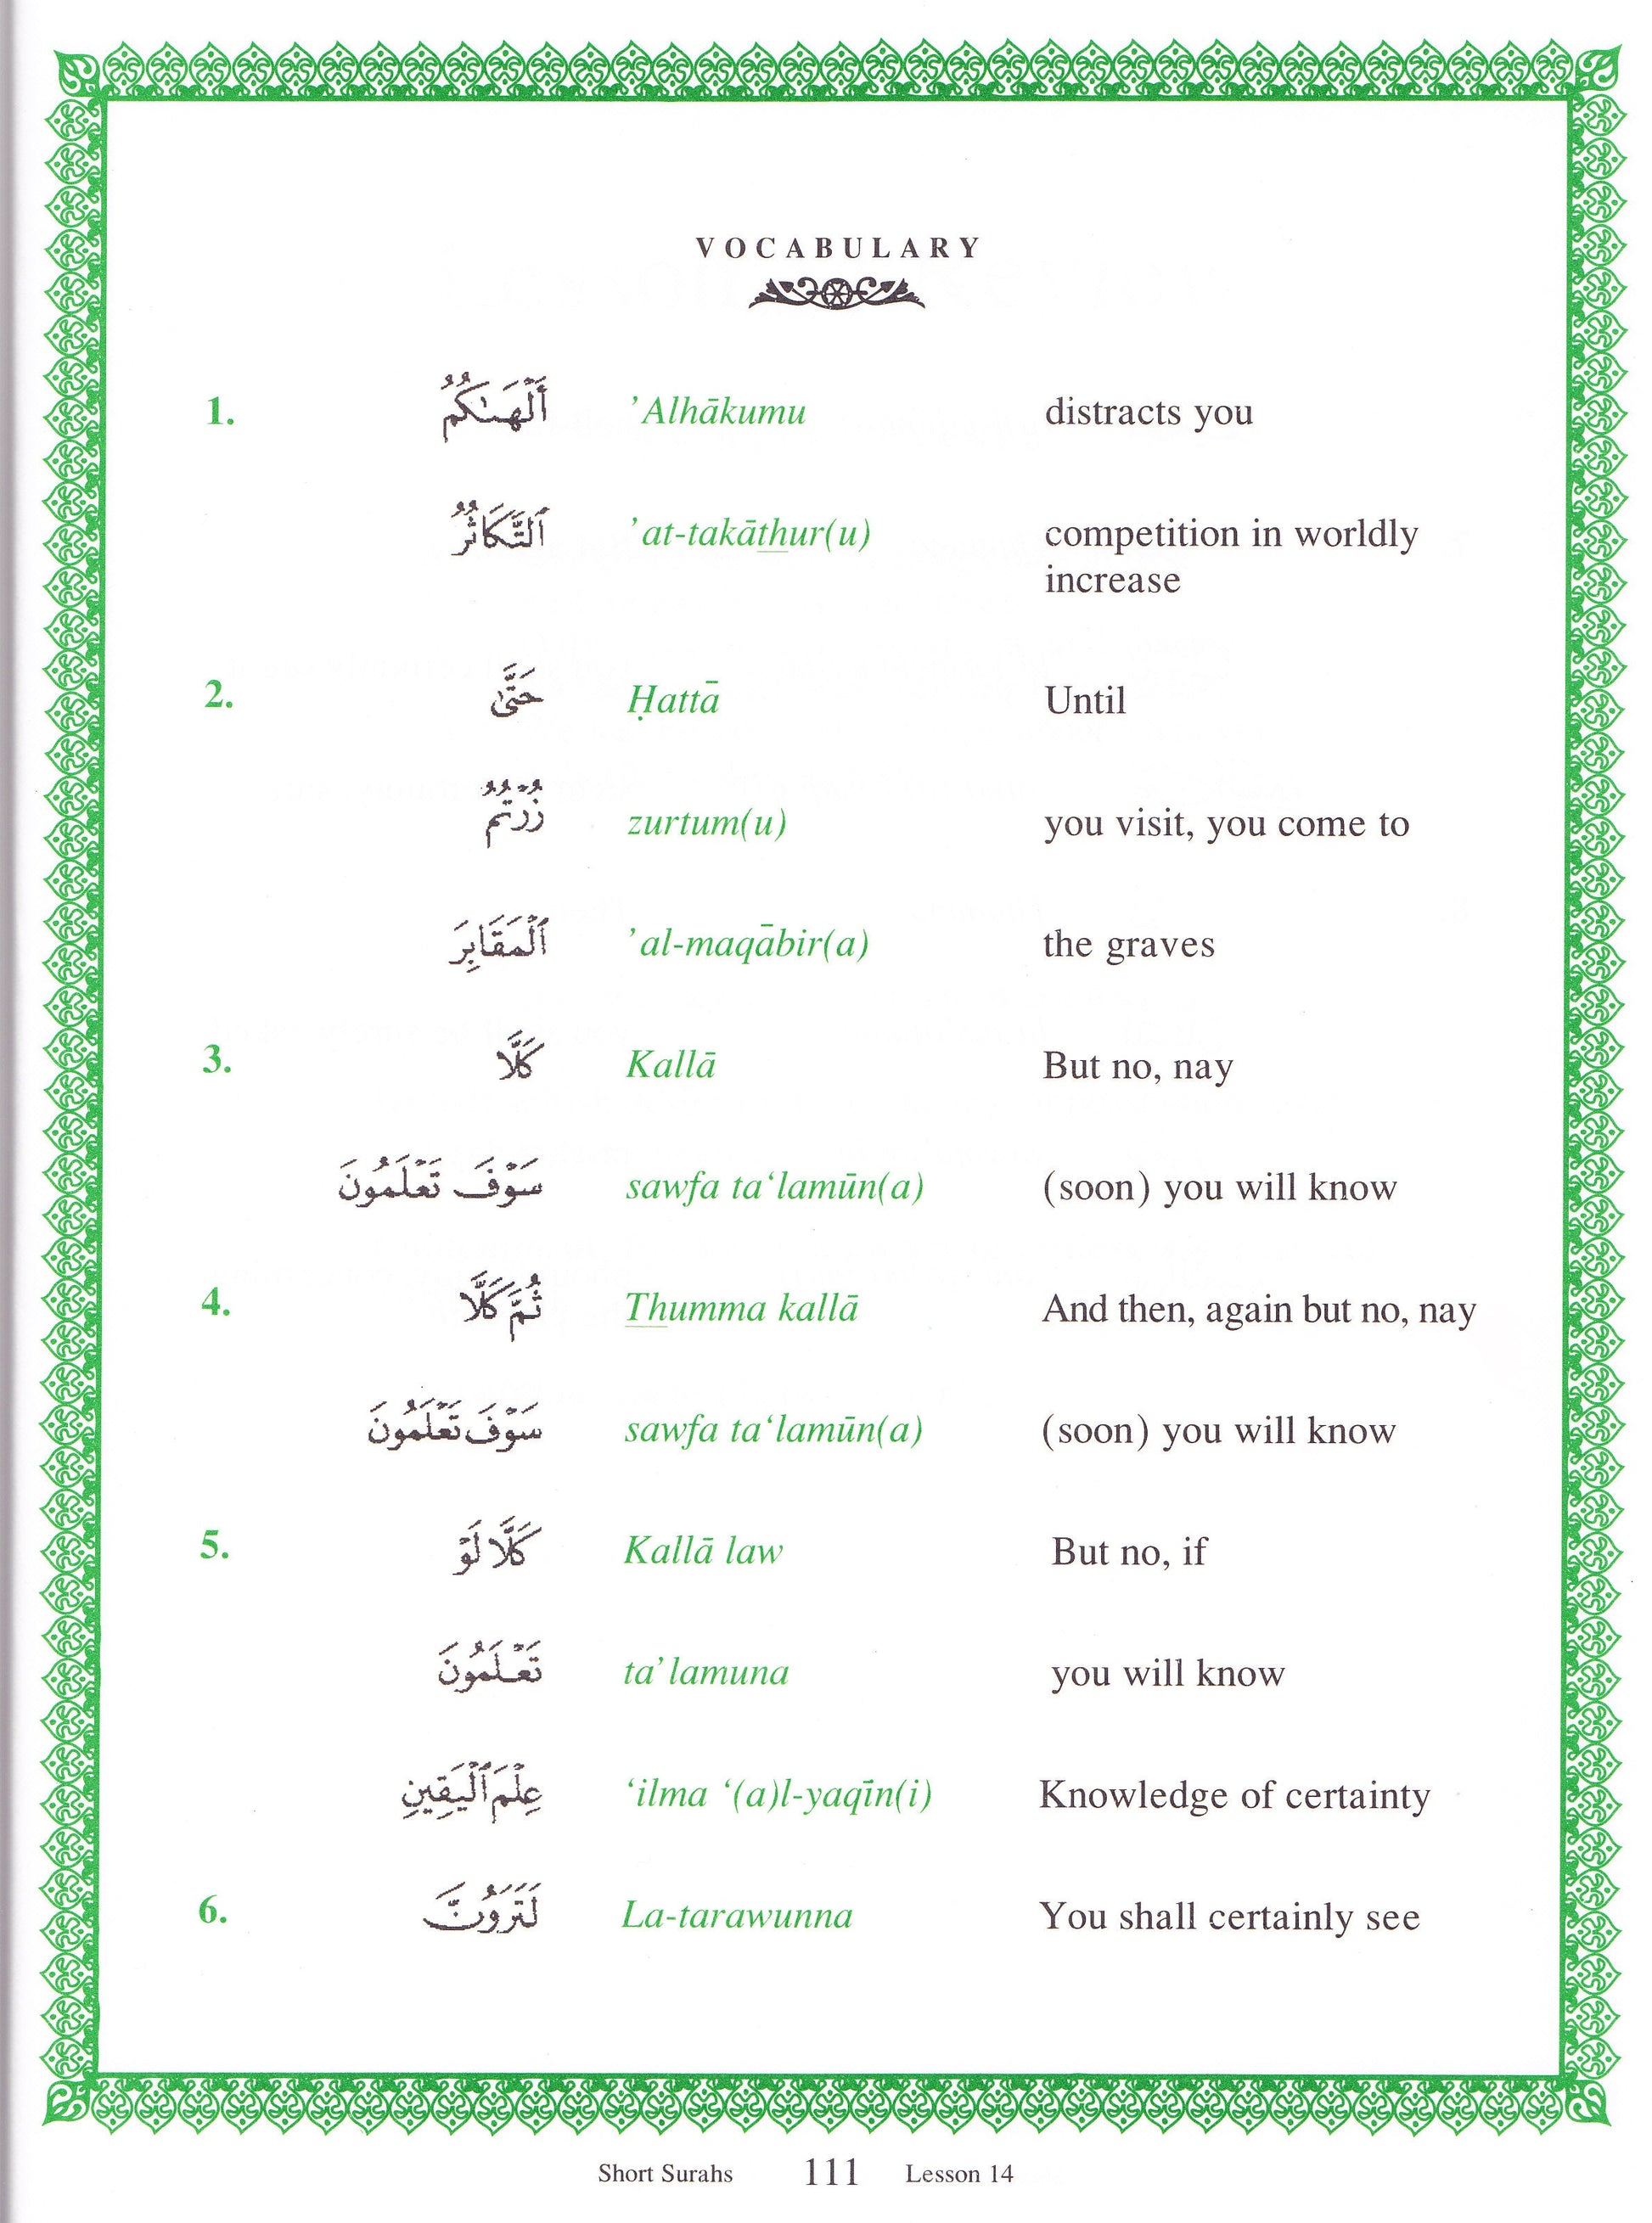 VOCABULARY
1. أَلْهَىٰكُمُ ’Alhākumu distracts you
ٱلتَّكَاثُرُ ’at-takāthur(u) competition in worldly
increase
2. حَتَّىٰ Ḥattā Until
زُرْتُمُ zurtum(u) you visit, you come to
ٱلْمَقَابِرَ ’al-maqābir(a) the graves
3. كَلَّا Kallā But no, nay
سَوْفَ تَعْلَمُونَ sawfa ta‘lamūn(a) (soon) you will know
4. ثُمَّ كَلَّا Thumma kallā And then, again but no, nay
سَوْفَ تَعْلَمُونَ sawfa ta‘lamūn(a) (soon) you will know
5. كَلَّا لَوْ Kallā law But no, if
تَعْلَمُونَ ta’lamuna you will know
عِلْمَ ٱلْيَقِينِ ‘ilma ‘(a)l-yaqīn(i) Knowledge of certainty
6. لَتَرَوُنَّ La-tarawunna You shall certainly see
Short Surahs 111 Lesson 14